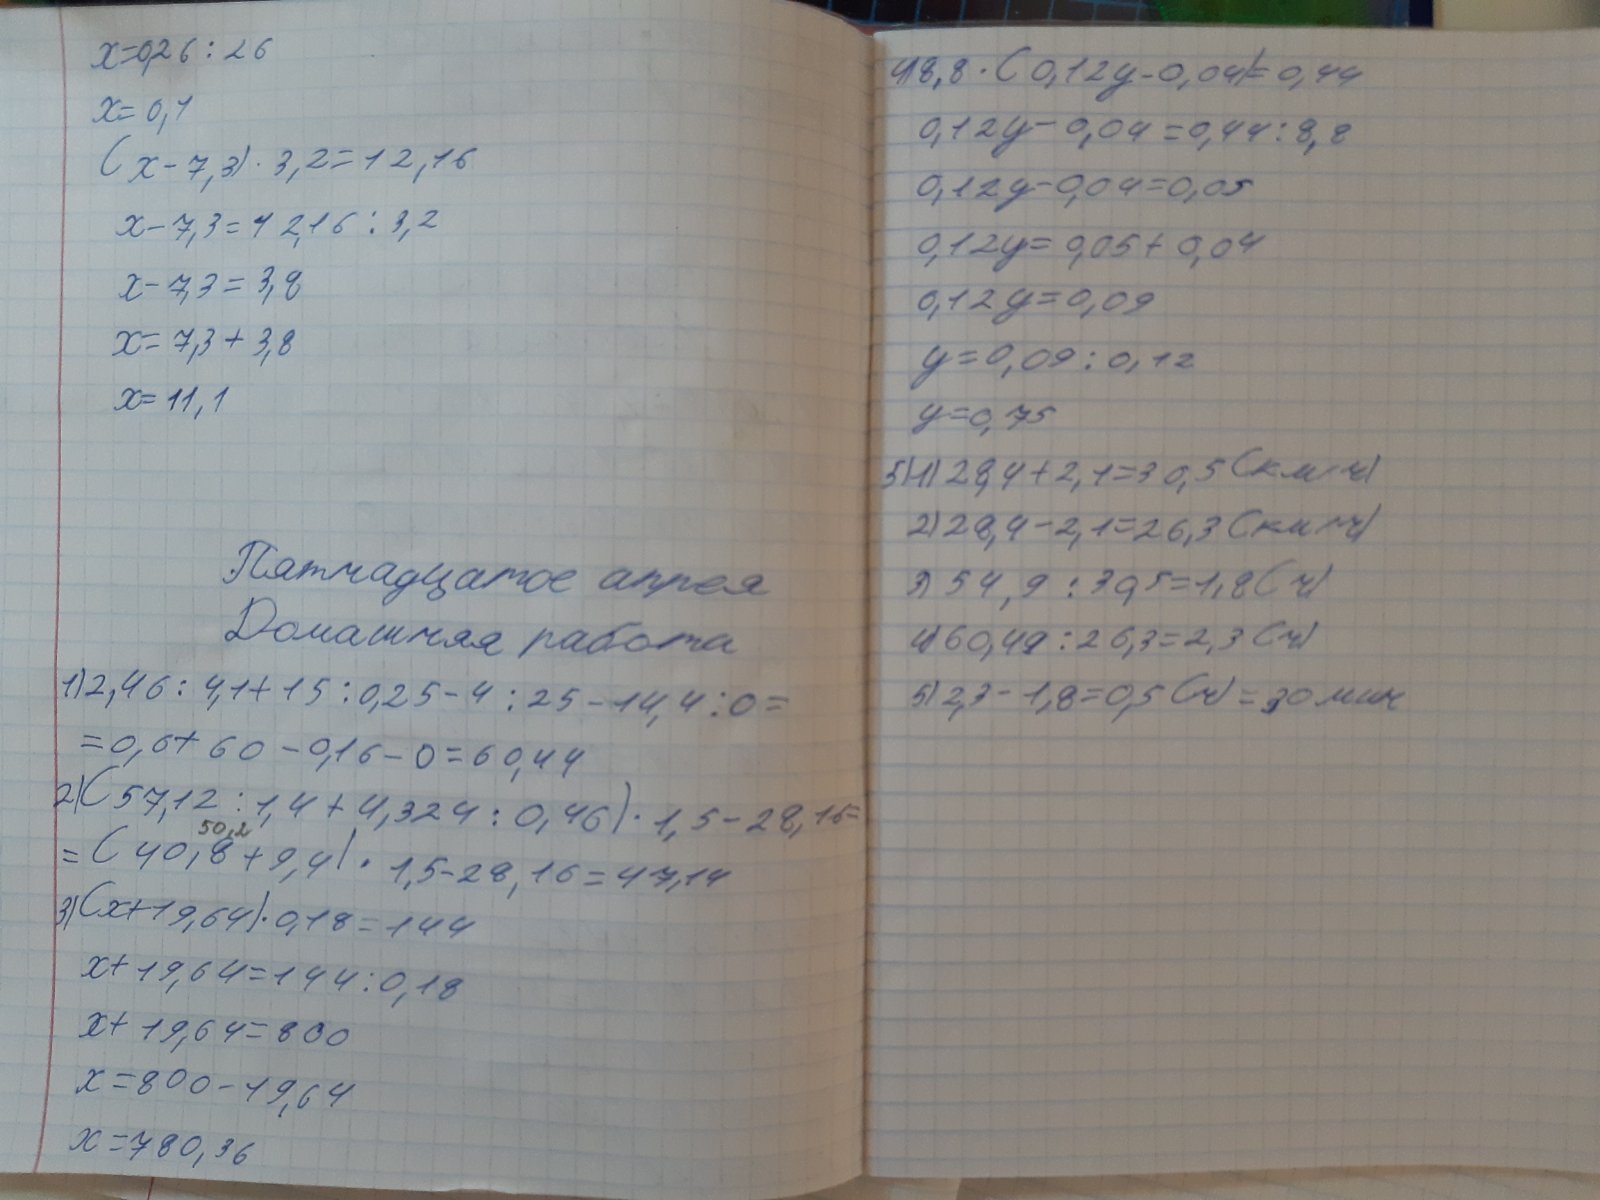 x=0,26:26
x=0,1
(x-7,3)·3,2=12,16
x-7,3=12,16:3,2
x-7,3=3,8
x=7,3+3,8
x=11,1
Пятнадцатое апреля
Домашняя работа
1)2,46:4,1+15:0,25-4:25-14,4:0=
=0,6+60-0,16-0=60,44
2)(57,12:1,4+4,324:0,46)·1,5-28,16=
50,2
=(40,8+9,4)·1,5-28,16=47,14
3)(x+19,64)·0,18=144
x+19,64=144:0,18
x+19,64=800
x=800-19,64
x=780,36
4)8,8·(0,12y-0,04)=0,44
0,12y-0,04=0,44:8,8
0,12y-0,04=0,05
0,12y=0,05+0,04
0,12y=0,09
y=0,09:0,12
y=0,75
5)1)28,4+2,1=30,5(км/ч)
2)28,4-2,1=26,3(км/ч)
3)54,9:30,5=1,8(ч)
4)60,49:26,3=2,3(ч)
5)2,3-1,8=0,5(ч)=30мин